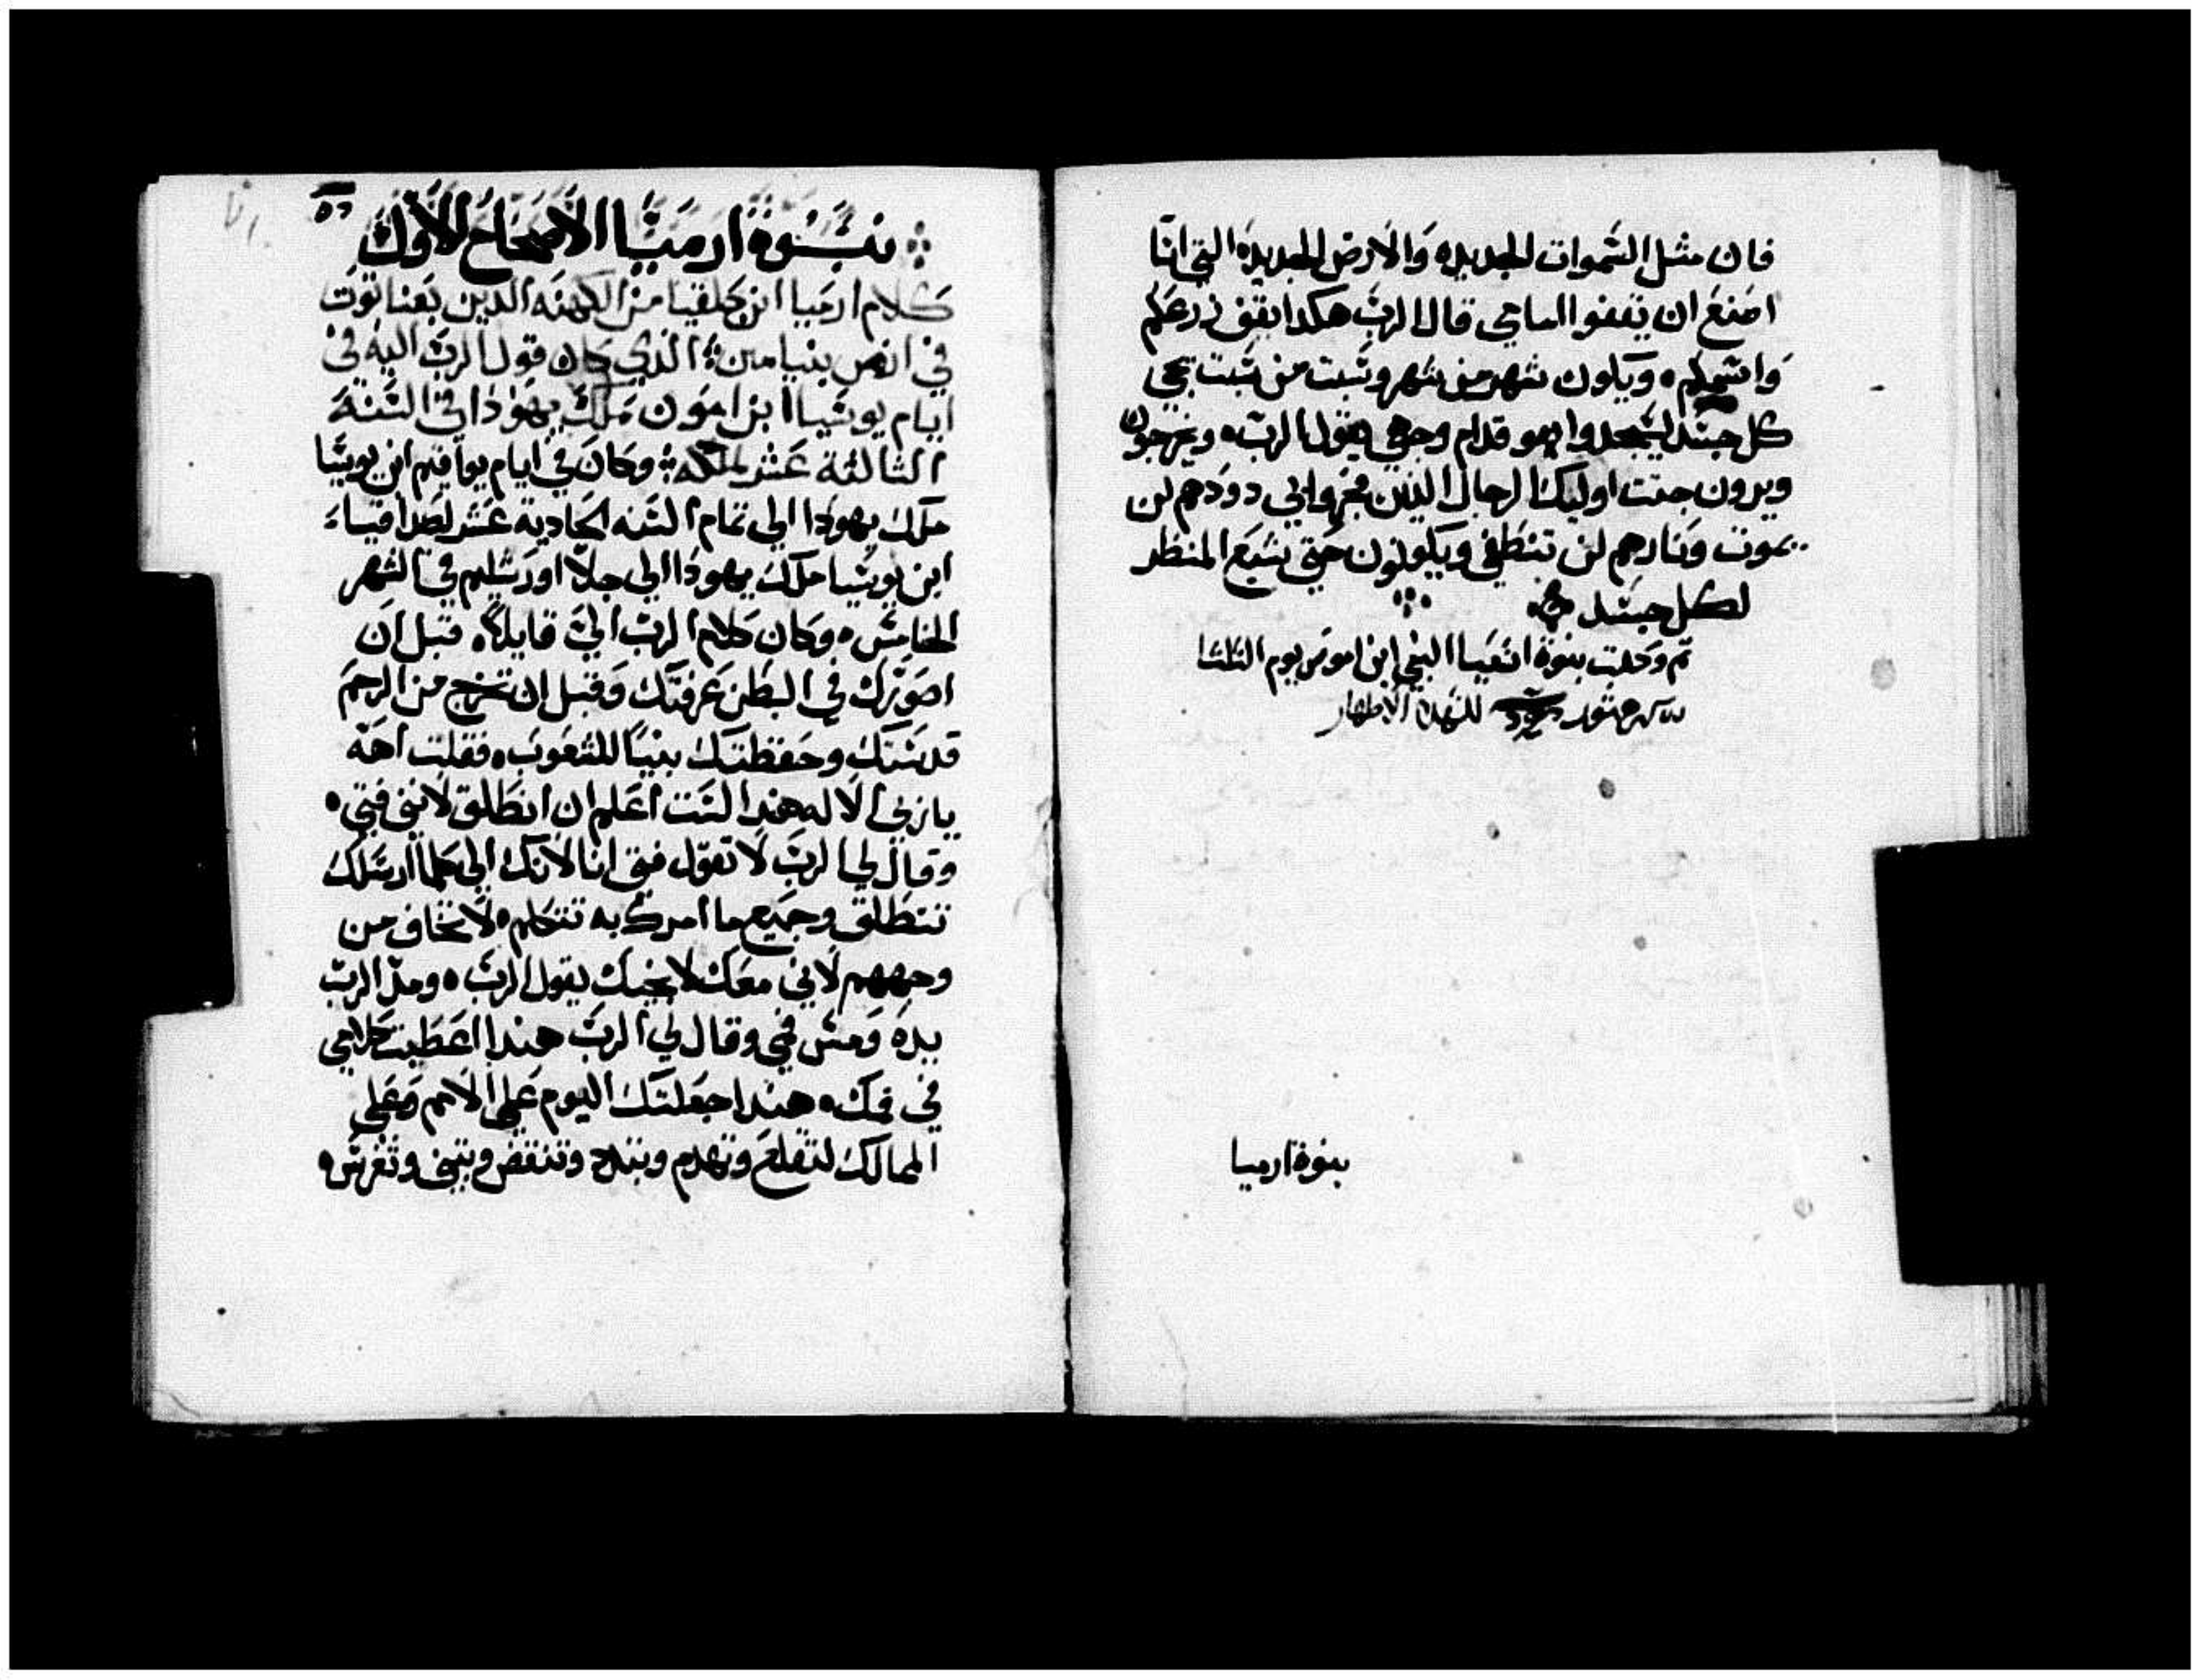 فان مثل السموات الجديده والارض الجديده التي انا
اصنع ان يقفوا امامي قال الرب هكدا يقف زرعكم
واسمكم ويكون شهر من شهر وسبت من سبت يجي
كل جسد ليسجدوا قدام وجهي يقول الرب ويخرجون
ويرون جثت اوليك الرجال الدين فجروا بي دودهم لن
يموت ونارهم لن تنطفي ويكونون حتي يشبع المنظر
لكل جسد
تم وكملت بنوة اشعيا النبي ابن اموص يوم الثلثا
للشهدا الاطهار
بنوة ارميا
نبوة ارميا الاصحاح الاول
كلام ارميا ابن حلقيا من الكهنه الدين بعناتوت
في ارض بنيامين الذي كان قول الرب اليه في
ايام يوشيا ابن امون ملك يهودا في السنة
الثالثة عشر لملكه وكان في ايام يواقيم ابن يوشيا
ملك يهودا الي تمام السنه الحادية عشر لصداقيا
ابن يوشيا ملك يهودا الي جلا اورشليم في الشهر
الخامس وكان كلام الرب الي قايلا قبل ان
اصورك في البطن عرفتك وقبل ان تخرج من الرحم
قدستك وحفظتك بنيا للشعوب فقلت اهه
يا ربي الاله هندا لست اعلم ان انطلق لانني فتي
وقال لي الرب لا تقول فتي انا لانك الي كلما ارسلك
تنطلق وجميع ما امرك به تتكلم لا تخاف من
وجههم لاني معك لانجيك يقول الرب ومد الرب
يده ومس فمي وقال لي الرب هندا اعطيت كلامي
في فمك هندا جعلتك اليوم علي الامم وعلي
الممالك لتقلع وتهدم وتبدد وتنقض وتبني وتغرس